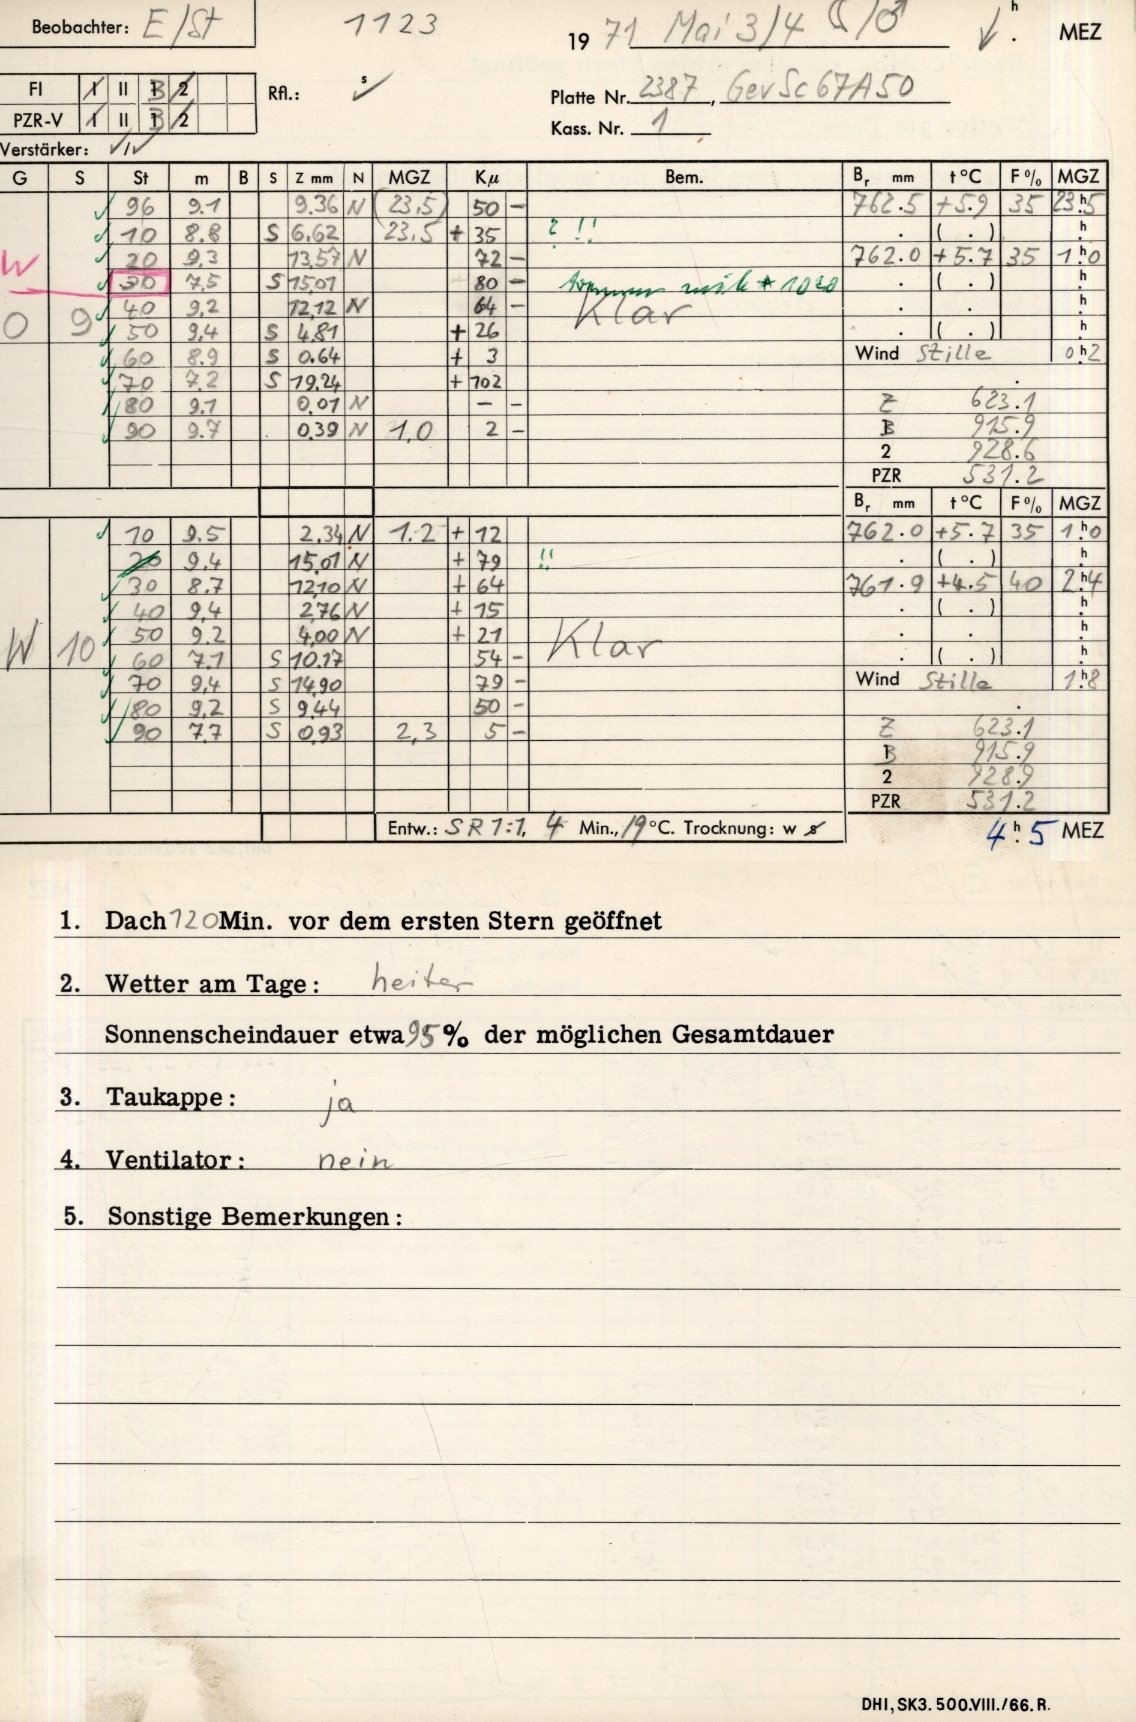 Beobachter: E/St 1123 1971 Mai 3/4 ☾/♂ h . MEZ
FI I II B 1 2 Rfl.: s Platte Nr. 2387, GevSc67A50
PZR-V I II B 1 2 Kass. Nr. 1
Verstärker:
G S St m B S Z mm N MGZ Kμ Bem. Br mm t °C F % MGZ
96 9.1 9.36 N (23,5) 50 - 762.5 +5.9 35 23h5
10 8.8 S 6.62 23,5 + 35 ? !! . ( . ) h
W 20 9,3 13,57 N 72 - 762.0 +5.7 35 1h0
30 7,5 S 15,01 80 - * 1020 . ( . ) h
40 9,2 12,12 N 64 - Klar . . h
O 9 50 9,4 S 4,81 + 26 . ( . ) h
60 8.9 S 0.64 + 3 Wind Stille 0h2
70 7.2 S 19.24 + 102 .
80 9.1 0,01 N - - Z 623.1
90 9.7 0,39 N 1,0 2 - B 915.9
2 928.6
PZR 531.2
Br mm t °C F % MGZ
10 9.5 2,34 N 1.2 + 12 762.0 +5.7 35 1h0
20 9,4 15,01 N + 79 !! . ( . ) h
30 8.7 12,10 N + 64 761.9 +4.5 40 2h4
40 9,4 2,76 N + 15 . ( . ) h
W 10 50 9.2 4,00 N + 21 Klar . . h
60 7.1 S 10.17 54 - . ( . ) h
70 9,4 S 14,90 79 - Wind Stille 1h8
80 9,2 S 9.44 50 - .
90 7.7 S 0,93 2,3 5 - Z 623.1
B 915.9
2 928.9
PZR 531.2
Entw.: SR 1:1, 4 Min., 19 °C. Trocknung: w s 4h.5 MEZ
1. Dach 120 Min. vor dem ersten Stern geöffnet
2. Wetter am Tage: heiter
Sonnenscheindauer etwa 95 % der möglichen Gesamtdauer
3. Taukappe: ja
4. Ventilator: nein
5. Sonstige Bemerkungen:
DHI, SK3. 500.VIII./66. R.